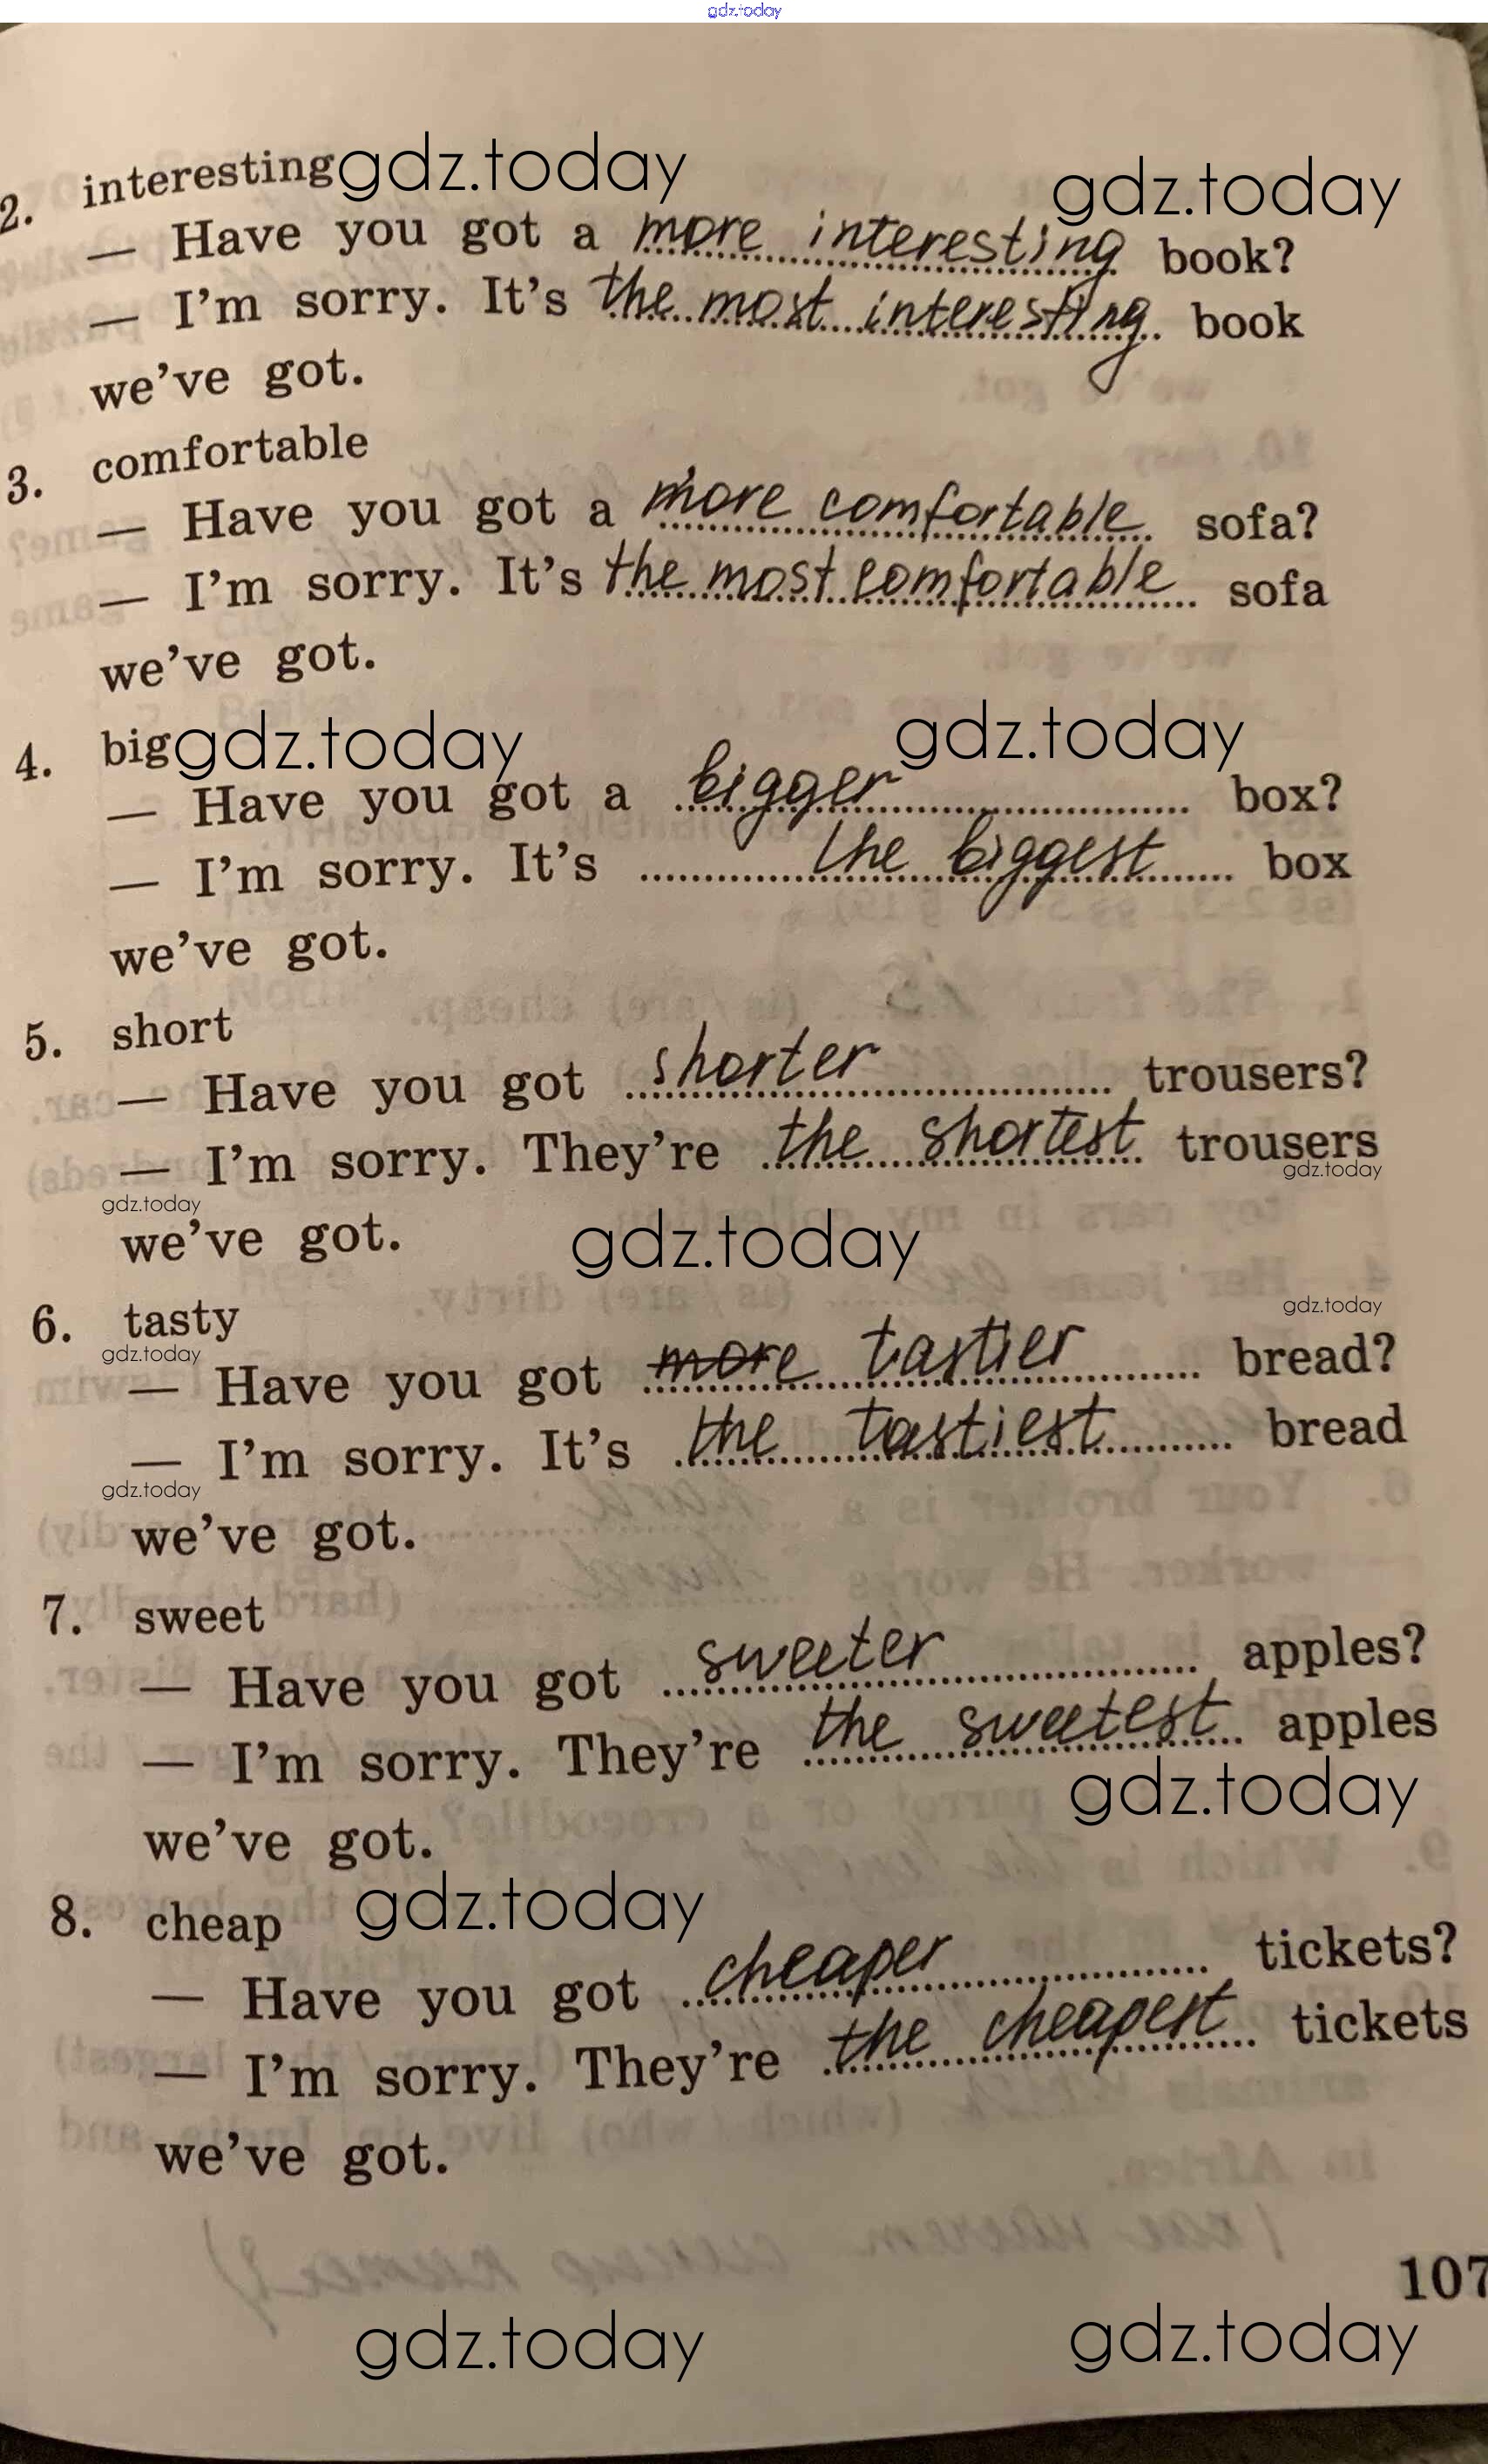 gdz.today
2. interesting gdz.today gdz.today
— Have you got a more interesting book?
— I'm sorry. It's the most interesting book
we've got.
3. comfortable
— Have you got a more comfortable sofa?
— I'm sorry. It's the most comfortable sofa
we've got.
4. big gdz.today gdz.today
— Have you got a bigger box?
— I'm sorry. It's the biggest box
we've got.
5. short
— Have you got shorter trousers?
— I'm sorry. They're the shortest trousers
gdz.today
gdz.today
we've got. gdz.today
6. tasty
gdz.today
gdz.today
— Have you got more tastier bread?
— I'm sorry. It's the tastiest bread
gdz.today
we've got.
7. sweet
— Have you got sweeter apples?
— I'm sorry. They're the sweetest apples
gdz.today
we've got.
8. cheap gdz.today
— Have you got cheaper tickets?
— I'm sorry. They're the cheapest tickets
we've got.
107
gdz.today gdz.today